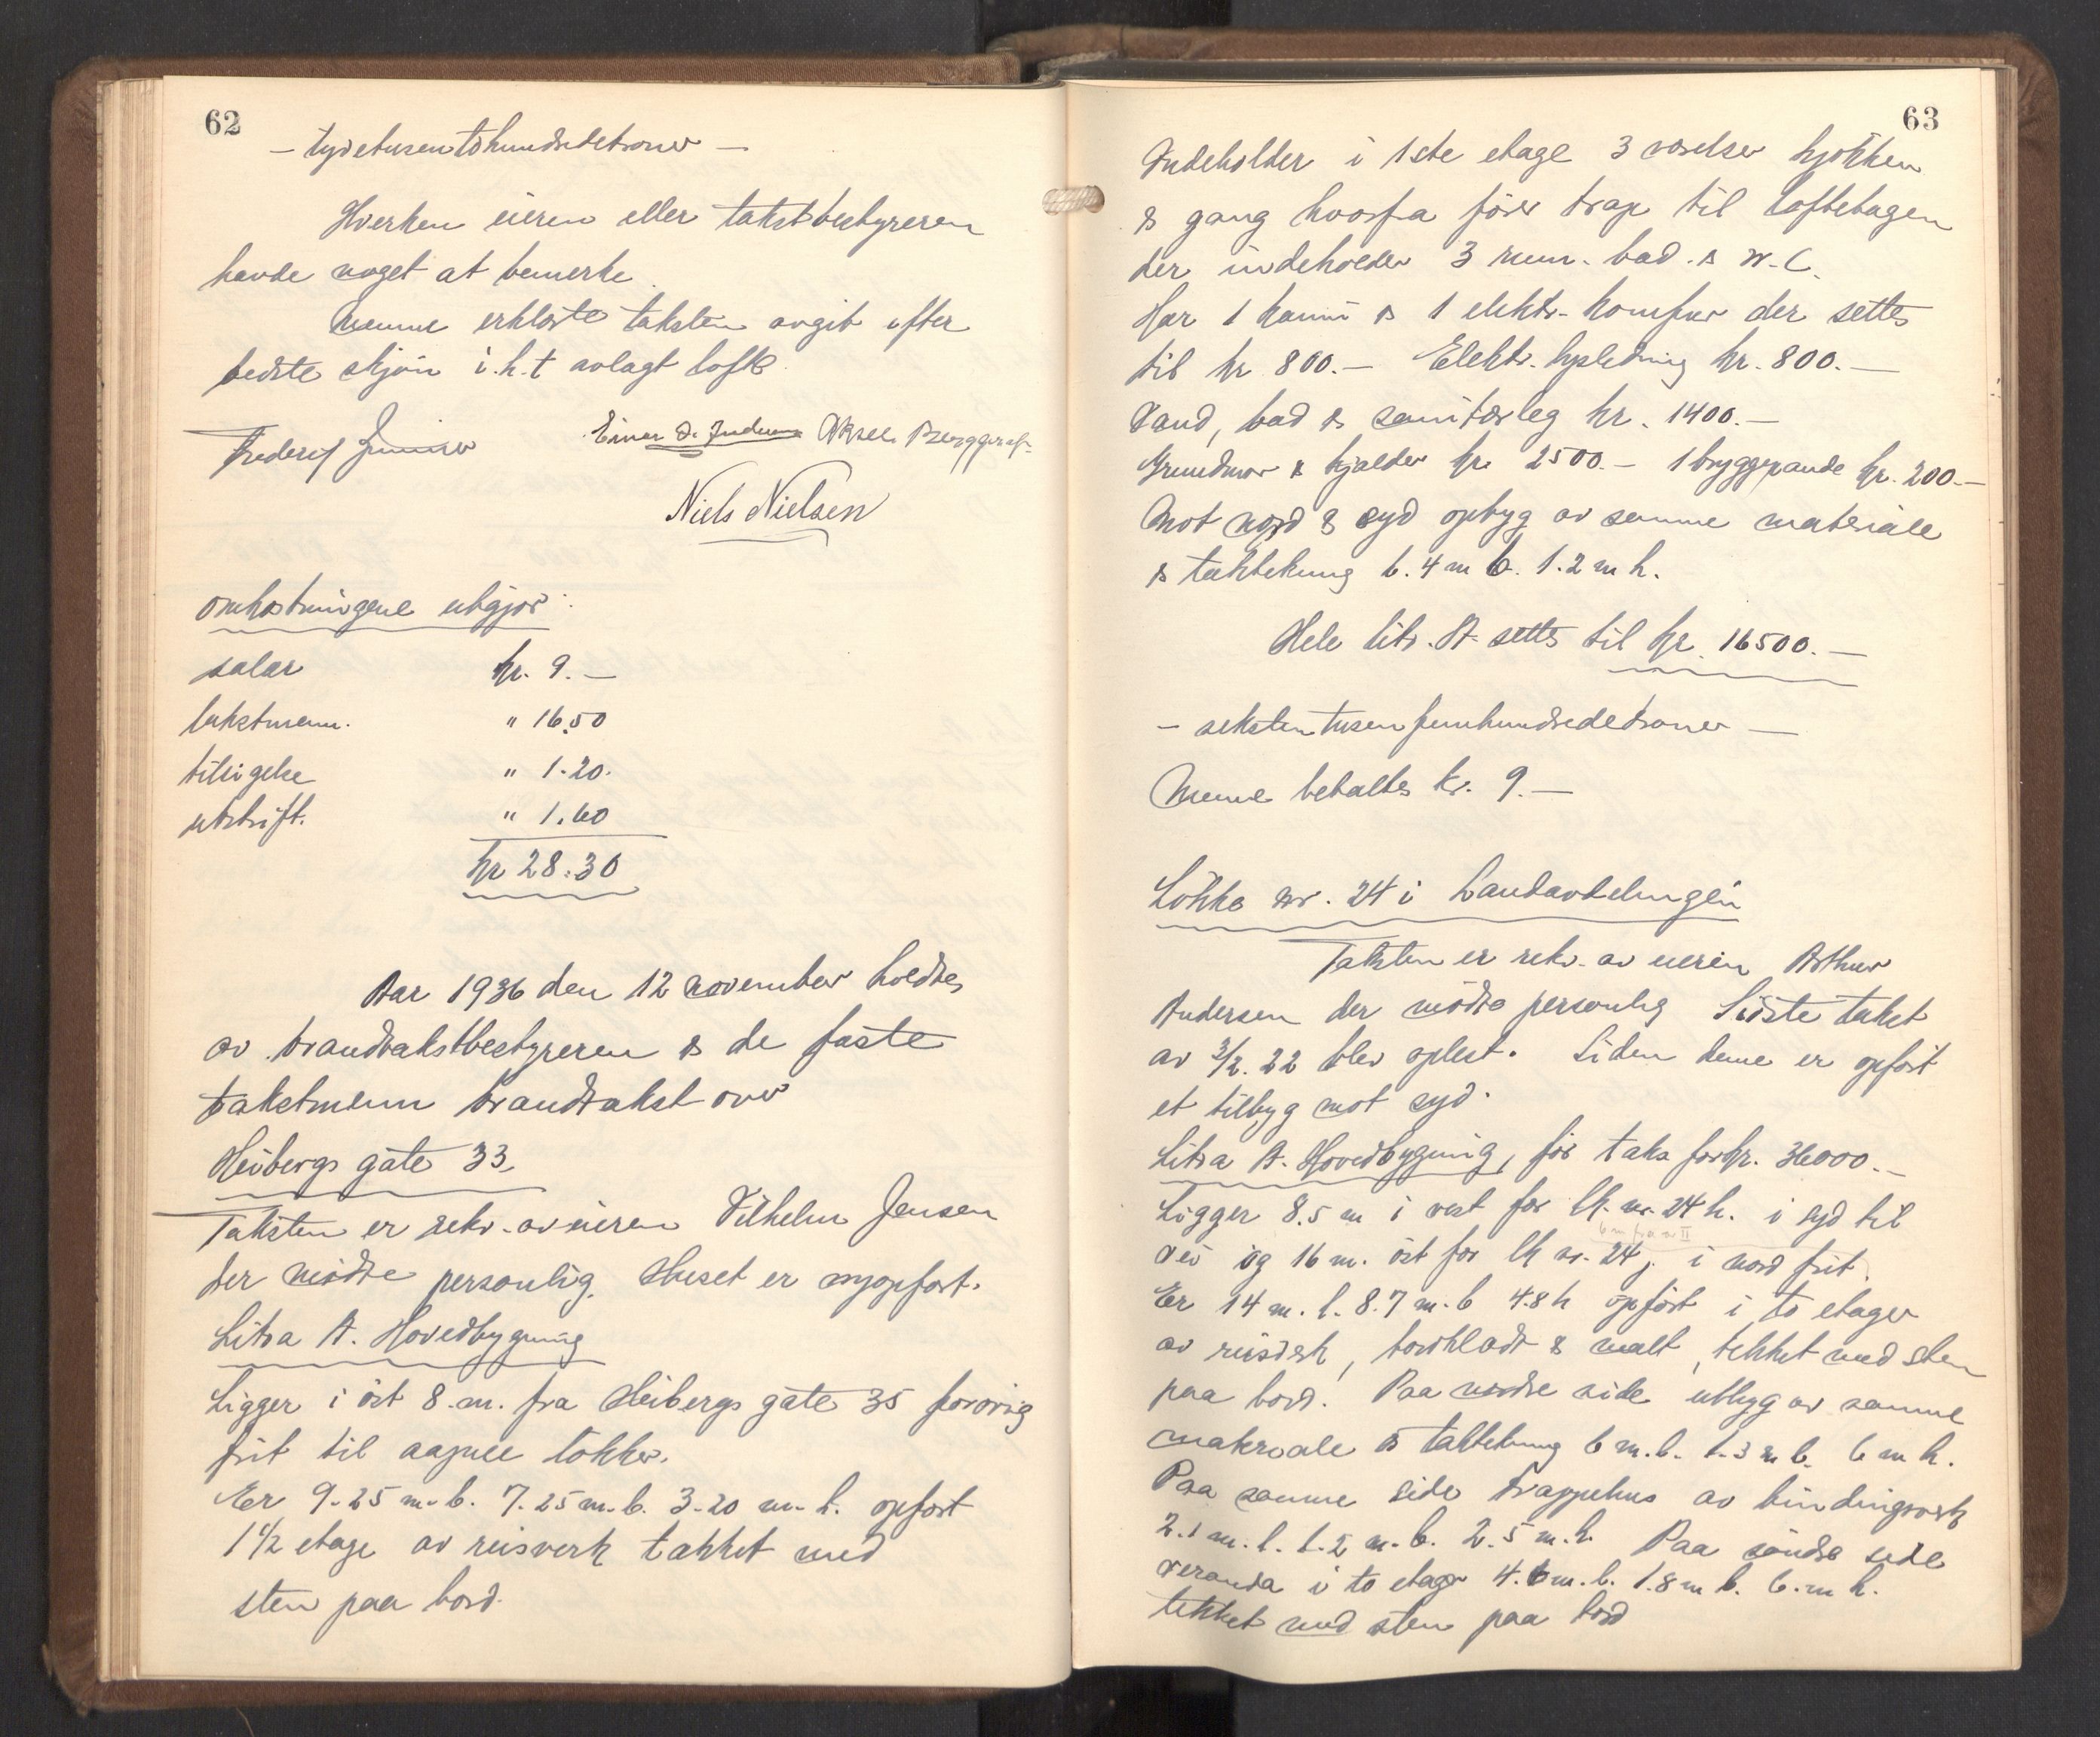 62
— tyvetusentohundredekroner —
Hverken eieren eller takstbestyreren
havde noget at bemerke.
Menne erklærte taksten avgit efter
bedste skjøn i.h.t avlagt løfte.
Frederik Einar Aksel Berggraf
Niels Nielsen
omkostningene utgjør:
salar kr. 9.—
takstmenn. " 16.50
tilsigelse " 1.20.
utskrift. " 1.60
kr 28.30
Aar 1936 den 12 november holdtes
av brandtakstbestyreren & de faste
takstmenn brandtakst over
Heibergs gate 33.
Taksten er rekv. av eieren Vilhelm Jensen
der mødte personlig. Huset er nyopført.
Litra A. Hovedbygning
Ligger i øst 8.m. fra Heibergs gate 35 forøvrig
frit til aapne løkker.
Er 9.25 m.l. 7.25 m.b. 3.20 m.h. opført
1 1/2 etage av reisverk tækket med
sten paa bord.
63
Indeholder i 1ste etage 3 værelser kjøkken
& gang hvorfra fører trap til loftetagen
der indeholder 3 rum. bad. & W.C.
Har 1 kamin & 1 elektr. komfur der settes
til kr 800.— Elektr. lysledning kr. 800.—
Vand, bad & sanitæranleg kr. 1400.—
Grundmur & kjælder kr. 2500.— 1 bryggepande kr. 200.—
Mot nord & syd opbyg av samme materiale
& taktekning 6.4 m b. 1.2 m h.
Hele litr. A. settes til kr. 16500.—
— sekstentusenfemhundredekroner —
Menne betaltes kr. 9.—
Løkke nr. 24 i Landavdelingen
Taksten er rekv. av eieren Arthur
Andersen der mødte personlig Sidste takst
av 3/2. 22 blev oplest. Siden denne er opført
et tilbyg mot syd.
Litra A. Hovedbygning, før takst for kr. 36000.—
Ligger 8.5 m i vest for lk. nr. 24 h. i syd til
vei og 16 m. øst for lk nr. 24 j. i nord frit.
Er 14 m. l. 8.7 m. b 4.8 h opført i to etager
av reisverk, bordklædt & malt, tekket med sten
paa bord. Paa nordre side utbyg av samme
materiale & taktekning 6 m.l. 1.3 m b. 6 m h.
Paa samme side trappehus av bindingsverk
2.1 m. l. 1.2 m. b. 2.5 m.h. Paa søndre side
veranda i to etager 4.6 m.l. 1.8 m b. 6.m h.
tekket med sten paa bord